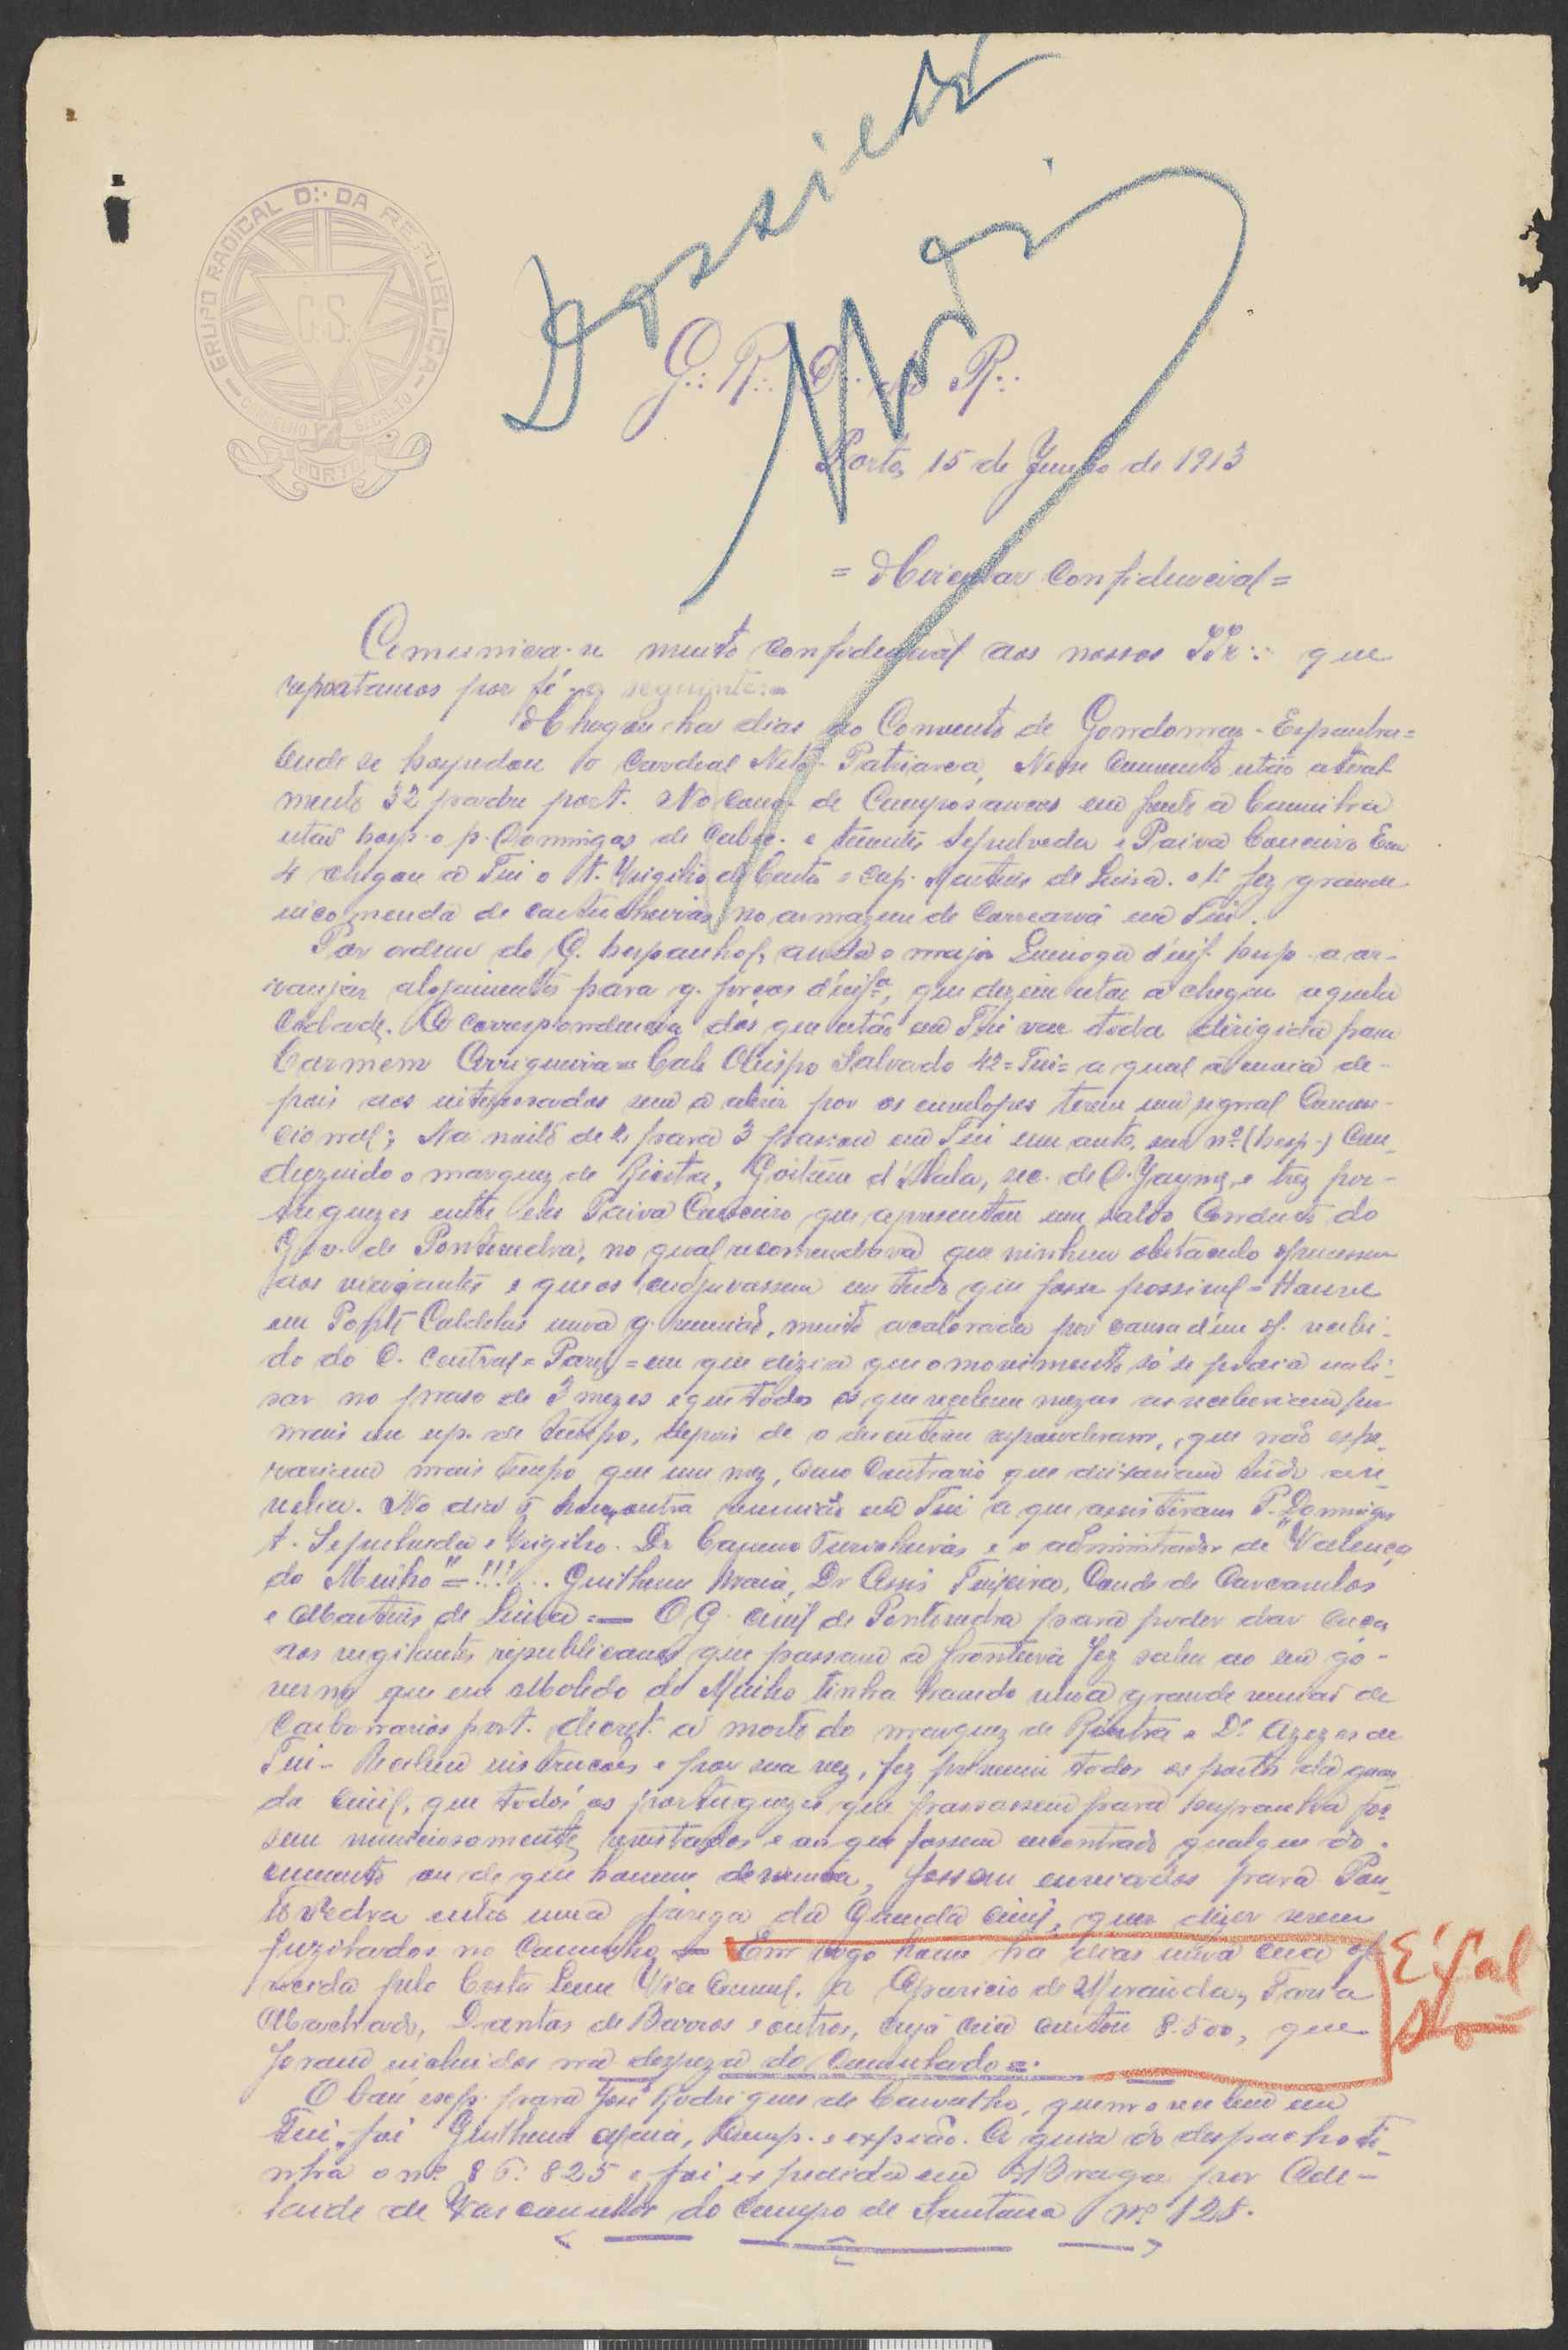 Dossier
GRUPO RADICAL D∴ DA REPUBLICA
C.S.
CONSELHO SECRETO
PORTO
G∴ R∴ D∴ da R∴
Porto, 15 de Junho de 1913
= Circular Confidencial =
Comunica-se muito confidencial aos nossos IIr∴ que
reputamos por fé o seguinte:=
Chegou ha dias ao Convento de Gondomar - Espanha=
onde se hospedou o Cardeal Neto - Patriarca, Nesse Convento estão atual
mente 32 padres port. No conv. de Camposancos em frente a Caminha
estão hosp. o p. Domingos de Cabec. e tenentes Sepulveda e Paiva Couceiro Em
4 chegou a Tui o t. Virgilio de Castro e cap. Martins de Lima. o 1º fez grande
encomenda de cartucheiras no armazem de em Tui.
Por ordem do G. hespanhol, anda o major d'inf. hesp. a ar-
ranjar alojamentos para g. forças d'infª, que dizem estar a chegar aquela
Cidade. A correspondencia dos que estão em Tui vae toda dirigida para
Carmem = Cale Obispo Salvado 42 = Tui = a qual a envia de-
pois aos interessados sem a abrir por os envelopes terem um signal Conven-
cional; Na noite de 2 para 3 passou em Tui um auto, sem nº (hesp.) Con-
duzindo o marquez de Riestra, d'Ayala, sec. de D. Jayme, e trez por-
tuguezes entre eles Paiva Couceiro que apresentou um salvo Conducto do
Gov. de Pontevedra, no qual recomendava que ninhum obstaculo ofrecessem
aos viajantes e que os cuadjuvassem em tudo que fosse possivel = Houve
em Ponte Caldelas uma g. reunião, muito acalorada por causa d'um of. recebi-
do do C. Central = Paris = em que dizia que o movimento só se podia reali-
sar no praso de 3 mezes e que todos os que recebem mezas as receberiam por
mais um esp. de tempo, depois de o discutirem responderam, que não espe-
rariam mais tempo que um mez, caso Contrario que deixariam tudo
No dia 5 houve outra reunião em Tui a que assistiram P. Domingos
t. Sepulveda e Virgilio. Dr e o administrador de "Valença
do Minho" = !!!... Guilherme Maia, Dr Assis Teixeira, Conde de Carcavelos
e Martins de Lima = O G. civil de Pontevedra para poder dar caça
aos vigilantes republicanos que passam a fronteira fez saber ao seu go-
verno que em Moledo do Minho tinha havido uma grande reunião de
Carbonarios port. decret. a morte do marquez de Riestra e Dr. Azezes de
Tui - Recebeu instrucções e por sua vez, fez prevenir todos os postos da guar-
da civil, que todos os portuguezes que passassem para hespanha fos-
sem minuciosamente revistados e aos que fossem encontrado qualquer do-
cumento ou de que houvesse denuncia, fossem enviados para Pon-
tevedra entre uma da Guarda civil, quer dizer serem
fuzilados no Caminho = Em Vigo houve ha dias uma ceia of-
recida pelo Costa Leme Vice Consul. a Aparicio de Miranda, Faria
Machado, Dantas de Barros e outros, cuja ceia custou 8.500, que
foram incluidos na despeza do Consulado =.
É falso
O bau exp. para José Rodrigues de Carvalho, quem o recebeu em
Tui, foi Guilherme Maia, O guia do despacho ti-
nha o nº 86:825 e foi expedida em Braga por Ade-
laide de Vasconcelos do Campo de Santana nº 128.